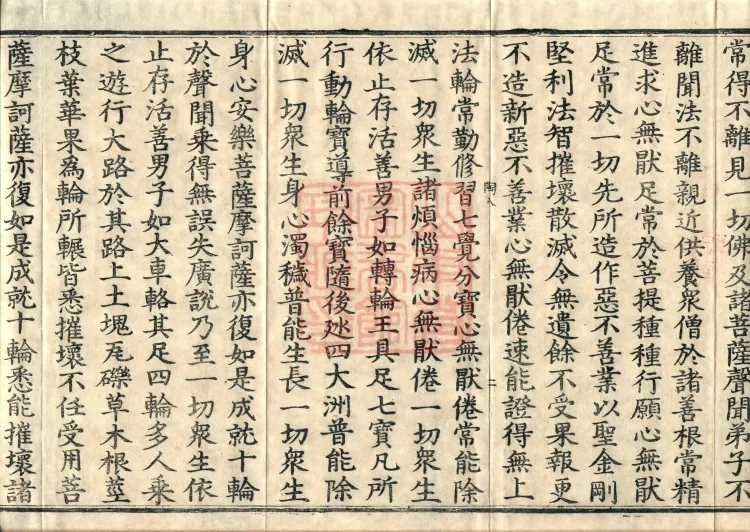 常得不離見一切佛及諸菩薩聲聞弟子不
離聞法不離親近供養衆僧於諸善根常精
進求心無猒足常於菩提種種行願心無猒
足常於一切先所造作惡不善業以聖金剛
堅利法智摧壞散滅令無遺餘不受果報更
不造新惡不善業心無猒倦速能證得無上
法輪常勤修習七覺分寶心無猒倦常能除
滅一切衆生諸煩惱病心無猒倦一切衆生
依止存活善男子如轉輪王具足七寶凡所
行動輪寶導前餘寶隨後巡四大洲普能除
滅一切衆生身心濁穢普能生長一切衆生
身心安樂菩薩摩訶薩亦復如是成就十輪
於聲聞乘得無誤失廣說乃至一切衆生依
止存活善男子如大車輅其足四輪多人乘
之遊行大路於其路上土塊瓦礫草木根莖
枝葉華果為輪所輾皆悉摧壞不任受用菩
薩摩訶薩亦復如是成就十輪悉能摧壞諸